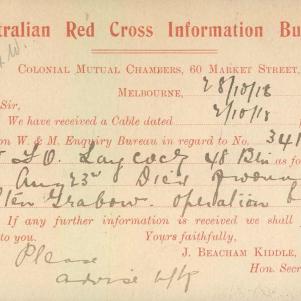 tralian Red Cross Information Bu
COLONIAL MUTUAL CHAMBERS, 60 MARKET STREET,
MELBOURNE, 28/10/18
Sir,
We have received a Cable dated 2/10/18
on W. & M. Enquiry Bureau in regard to No. 341
Laycock 48 Btn as fo
Aug 23rd Died
Grabow. operation
If any further information is received we shall
to you. Yours faithfully,
J. BEACHAM KIDDLE,
Hon. Secre
Please
advise